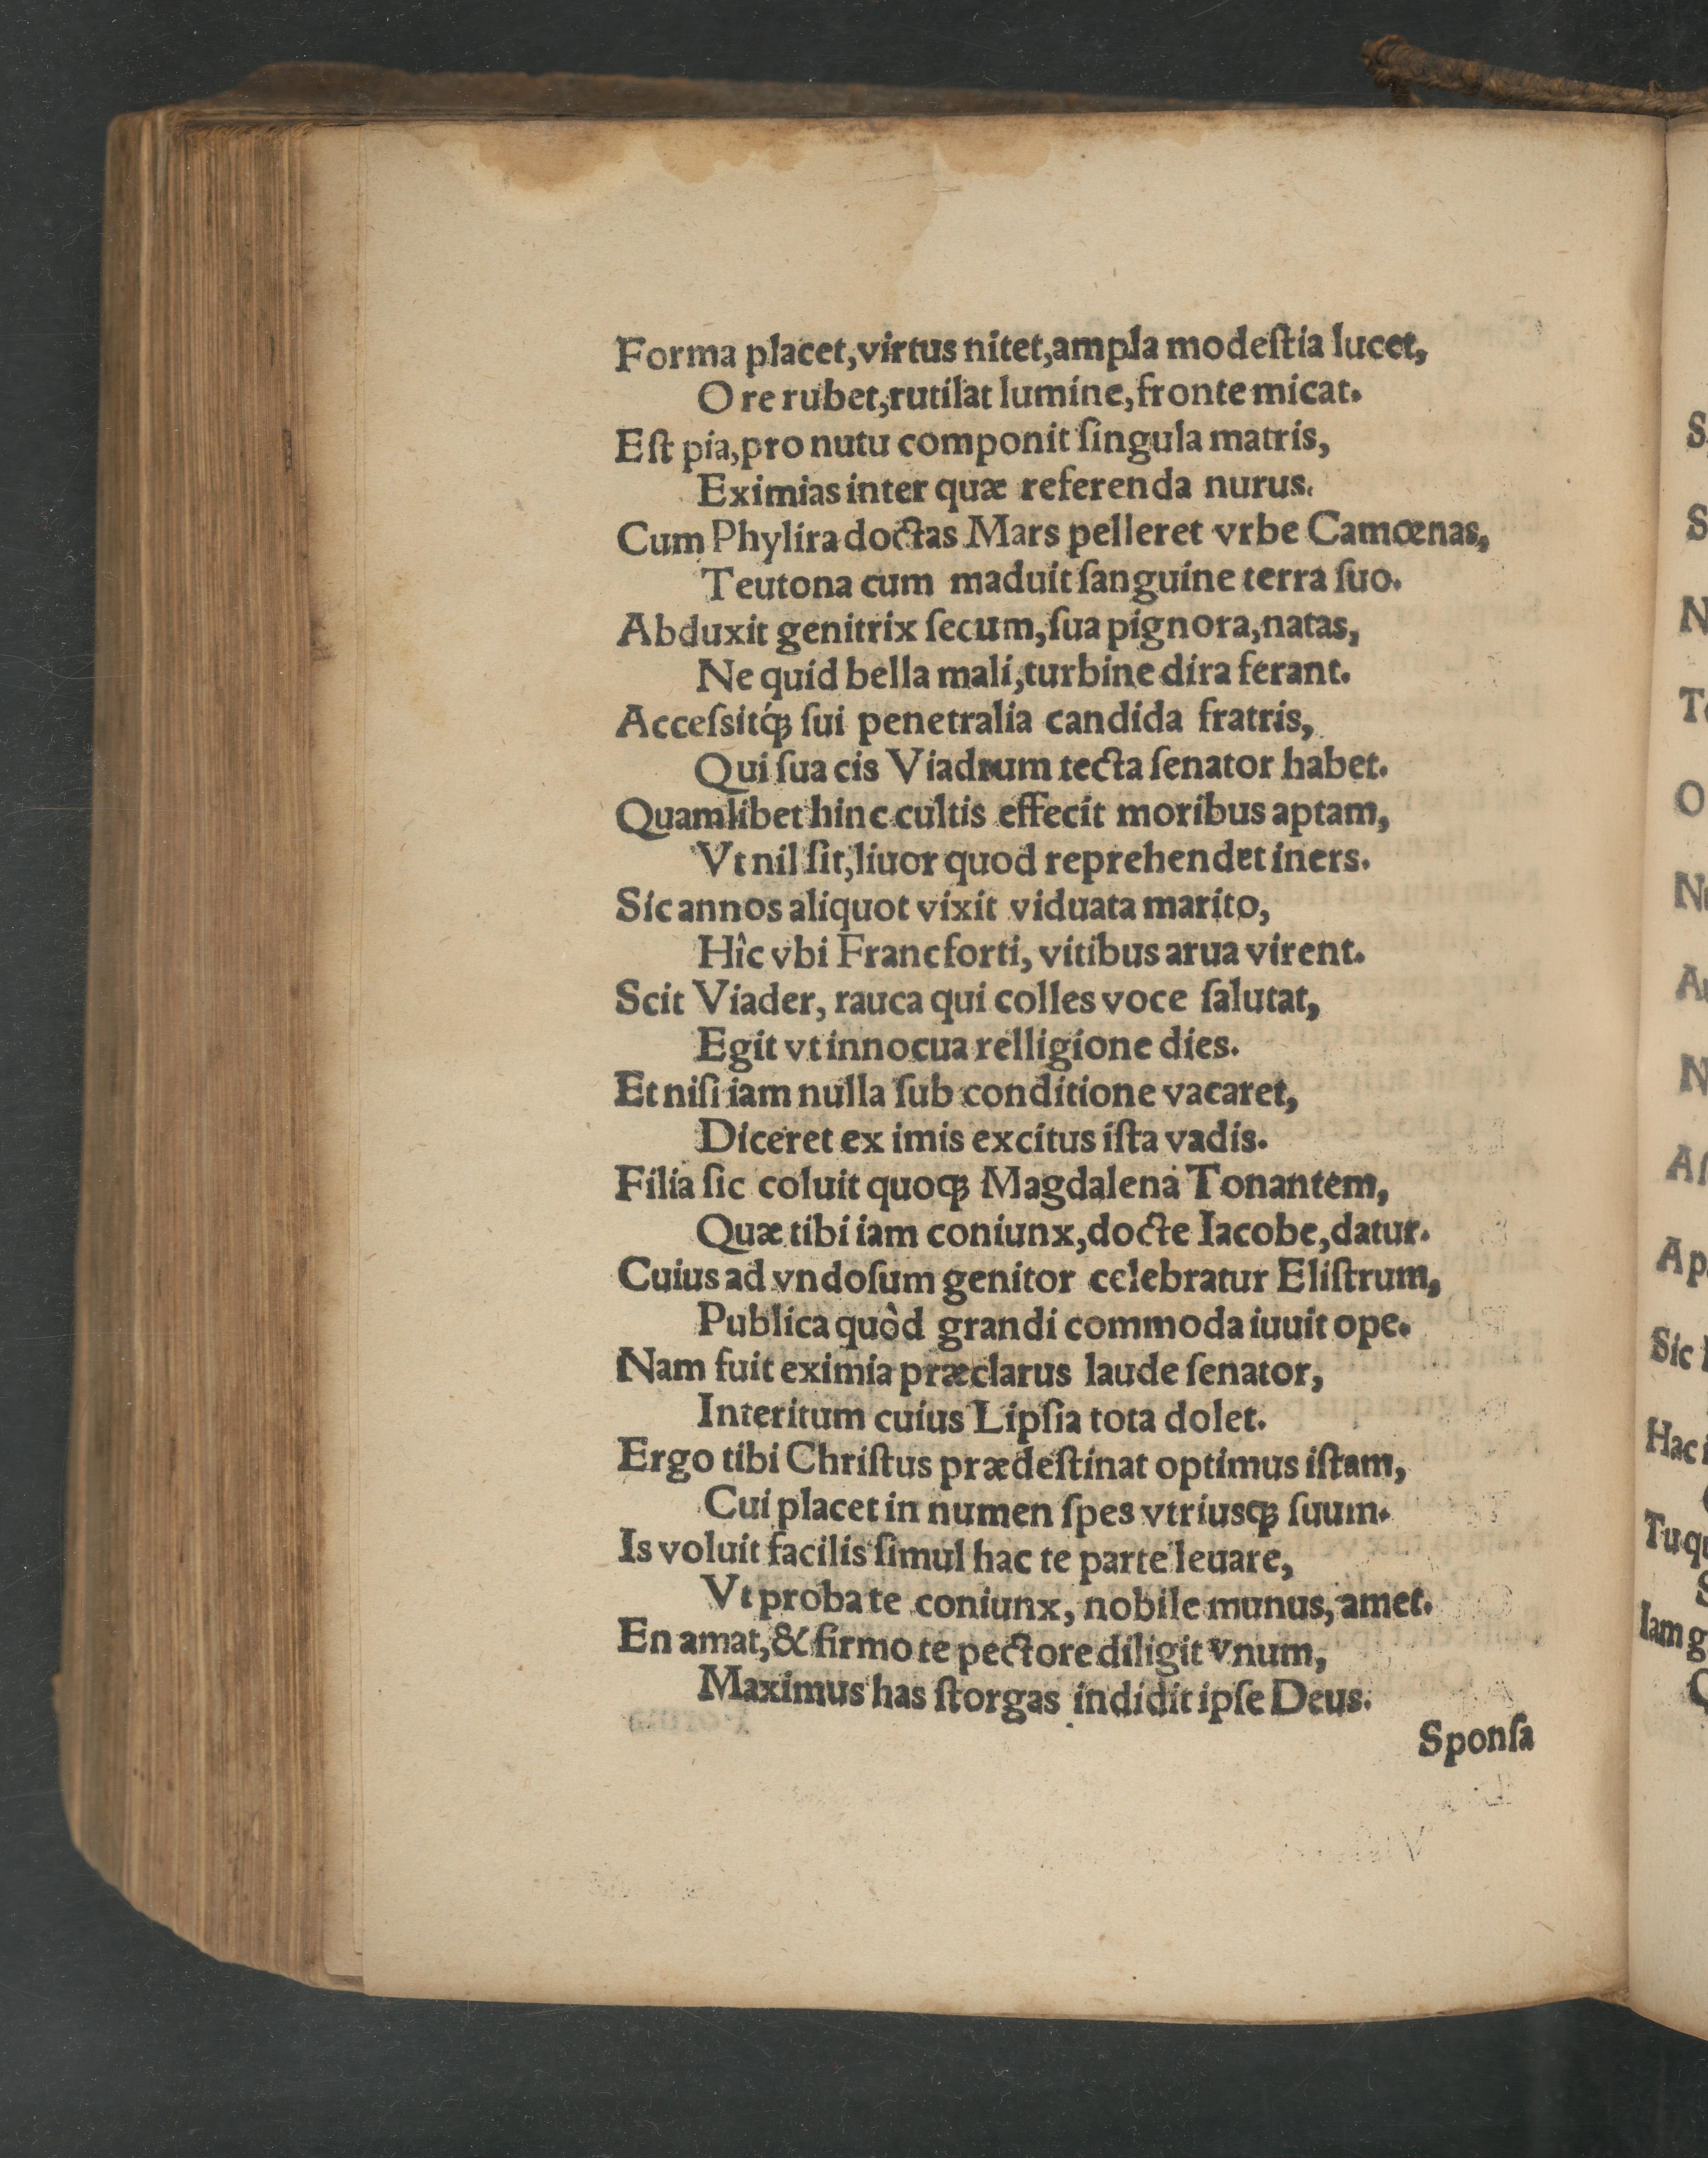 Forma placet, virtus nitet, ampla modeſtia lucet,
Ore rubet, rutilat lumine, fronte micat.
Eſt pia, pro nutu componit ſingula matris,
Eximias inter quæ referenda nurus.
Cum Phylira doctas Mars pelleret vrbe Camœnas,
Teutona cum maduit ſanguine terra ſuo.
Abduxit genitrix ſecum, ſua pignora, natas,
Ne quid bella mali, turbine dira ferant.
Acceſsitq́ꝫ ſui penetralia candida fratris,
Qui ſua cis Viadrum tecta ſenator habet.
Quamlibet hinc cultis effecit moribus aptam,
Vt nil ſit, liuor quod reprehendet iners.
Sic annos aliquot vixit viduata marito,
Hîc vbi Francforti, vitibus arua virent.
Scit Viader, rauca qui colles voce ſalutat,
Egit vt innocua relligione dies.
Et niſi iam nulla ſub conditione vacaret,
Diceret ex imis excitus iſta vadis.
Filia ſic coluit quoqꝫ Magdalena Tonantem,
Quæ tibi iam coniunx, docte Iacobe, datur.
Cuius ad vndoſum genitor celebratur Eliſtrum,
Publica quòd grandi commoda iuuit ope.
Nam fuit eximia præclarus laude ſenator,
Interitum cuius Lipſia tota dolet.
Ergo tibi Chriſtus prædeſtinat optimus iſtam,
Cui placet in numen ſpes vtriusqꝫ ſuum.
Is voluit facilis ſimul hac te parte leuare,
Vt proba te coniunx, nobile munus, amet.
En amat, & firmo te pectore diligit vnum,
Maximus has ſtorgas indidit ipſe Deus.
Sponſa